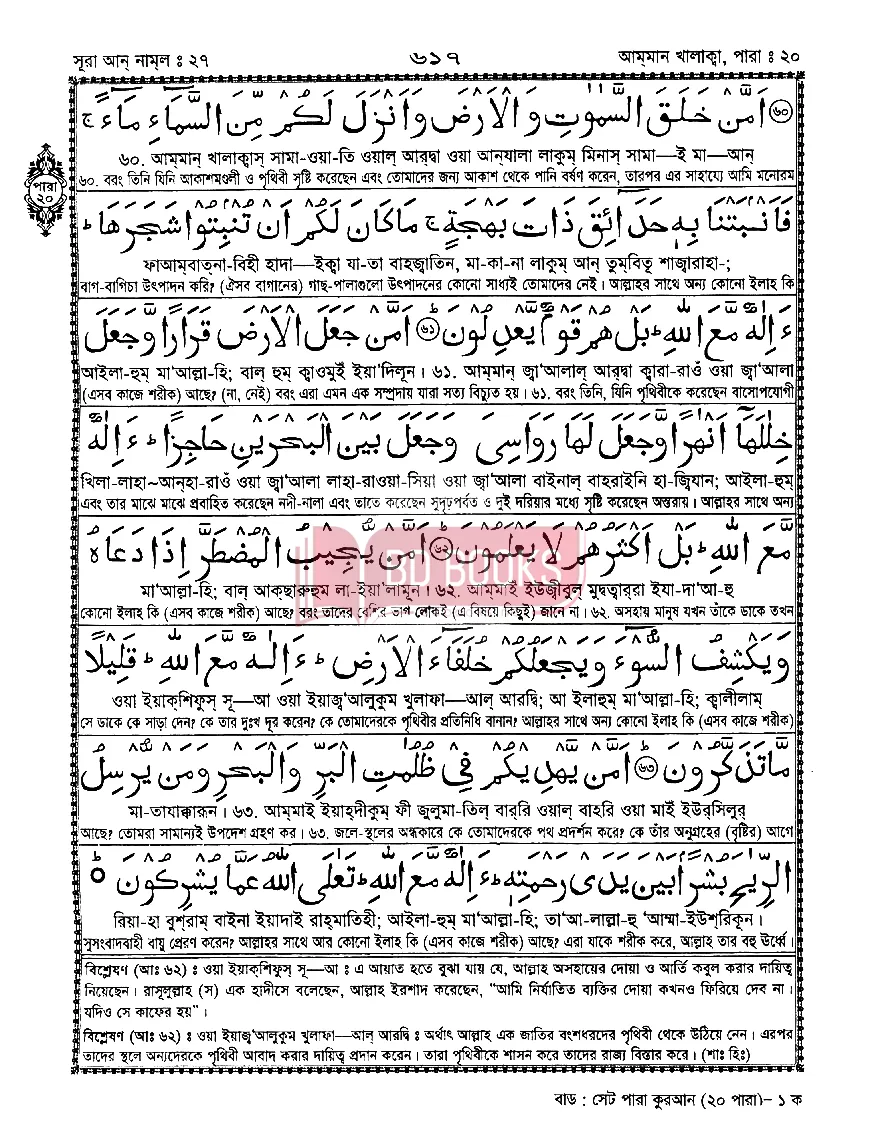 সূরা আন্ নাম্‌ল ঃ ২৭ ৬১৭ আম্‌মান খালাক্বা, পারা ঃ ২০
اَمَّنْ خَلَقَ السَّمٰوٰتِ وَالْاَرْضَ وَاَنْزَلَ لَكُمْ مِّنَ السَّمَآءِ مَآءً ج ۝৬০
৬০. আম্‌মান্ খালাক্বাস্ সামা-ওয়া-তি ওয়াল্ আরদ্বা ওয়া আন্‌যালা লাকুম্ মিনাস্ সামা—ই মা—আন্
পারা ২০
৬০. বরং তিনি যিনি আকাশমণ্ডলী ও পৃথিবী সৃষ্টি করেছেন এবং তোমাদের জন্য আকাশ থেকে পানি বর্ষণ করেন, তারপর এর সাহায্যে আমি মনোরম
فَاَنْۢبَتْنَا بِهٖ حَدَآئِقَ ذَاتَ بَهْجَةٍ ج مَا كَانَ لَكُمْ اَنْ تُنْۢبِتُوْا شَجَرَهَا ط
ফাআম্‌বাত্‌না-বিহী হাদা—ইক্বা যা-তা বাহ্‌জ্বাতিন্, মা-কা-না লাকুম্ আন্ তুম্‌বিতূ শাজ্বারাহা-;
বাগ-বাগিচা উৎপাদন করি? (ঐসব বাগানের) গাছ-পালাগুলো উৎপাদনের কোনো সাধ্যই তোমাদের নেই। আল্লাহর সাথে অন্য কোনো ইলাহ কি
ءَاِلٰهٌ مَّعَ اللهِ ط بَلْ هُمْ قَوْمٌ يَّعْدِلُوْنَ ۝৬১ اَمَّنْ جَعَلَ الْاَرْضَ قَرَارًا وَّجَعَلَ
আইলা-হুম্ মা'আল্লা-হি; বাল্ হুম্ ক্বাওমুই ইয়া'দিলূন। ৬১. আম্‌মান্ জ্বা'আলাল্ আরদ্বা ক্বারা-রাওঁ ওয়া জ্বা'আলা
(এসব কাজে শরীক) আছে? (না, নেই) বরং এরা এমন এক সম্প্রদায় যারা সত্য বিচ্যুত হয়। ৬১. বরং তিনি, যিনি পৃথিবীকে করেছেন বাসোপযোগী
خِلٰلَهَآ اَنْهٰرًا وَّجَعَلَ لَهَا رَوَاسِىَ وَجَعَلَ بَيْنَ الْبَحْرَيْنِ حَاجِزًا ط ءَاِلٰهٌ
খিলা-লাহা~আন্‌হা-রাওঁ ওয়া জ্বা'আলা লাহা-রাওয়া-সিয়া ওয়া জ্বা'আলা বাইনাল্ বাহ্‌রাইনি হা-জ্বিযান; আইলা-হুম্
এবং তার মাঝে মাঝে প্রবাহিত করেছেন নদী-নালা এবং তাতে করেছেন সুদৃঢ়পর্বত ও দুই দরিয়ার মধ্যে সৃষ্টি করেছেন অন্তরায়। আল্লাহর সাথে অন্য
مَّعَ اللهِ ط بَلْ اَكْثَرُهُمْ لَا يَعْلَمُوْنَ ۝৬২ اَمَّنْ يُّجِيْبُ الْمُضْطَرَّ اِذَا دَعَاهُ
BD BOOKS
মা'আল্লা-হি; বাল্ আক্‌ছারুহুম লা-ইয়া'লামূন। ৬২. আম্‌মাই ইউজ্বীবুল্ মুদ্বত্বার্‌রা ইযা-দা'আ-হু
কোনো ইলাহ কি (এসব কাজে শরীক) আছে? বরং তাদের বেশির ভাগ লোকই (এ বিষয়ে কিছুই) জানে না। ৬২. অসহায় মানুষ যখন তাঁকে ডাকে তখন
وَيَكْشِفُ السُّوْٓءَ وَيَجْعَلُكُمْ خُلَفَآءَ الْاَرْضِ ط ءَاِلٰهٌ مَّعَ اللهِ ط قَلِيْلًا
ওয়া ইয়াক্‌শিফুস্ সূ—আ ওয়া ইয়াজ্ব'আলুকুম খুলাফা—আল্ আরদ্বি; আ ইলাহুম্ মা'আল্লা-হি; ক্বালীলাম্
সে ডাকে কে সাড়া দেন? কে তার দুঃখ দূর করেন? কে তোমাদেরকে পৃথিবীর প্রতিনিধি বানান? আল্লাহর সাথে অন্য কোনো ইলাহ কি (এসব কাজে শরীক)
مَّا تَذَكَّرُوْنَ ۝৬৩ اَمَّنْ يَّهْدِيْكُمْ فِىْ ظُلُمٰتِ الْبَرِّ وَالْبَحْرِ وَمَنْ يُّرْسِلُ
মা-তাযাক্কারূন। ৬৩. আম্‌মাই ইয়াহ্‌দীকুম্ ফী জুলুমা-তিল্ বার্‌রি ওয়াল্ বাহ্‌রি ওয়া মাই ইউর্‌সিলুর্
আছে? তোমরা সামান্যই উপদেশ গ্রহণ কর। ৬৩. জলে-স্থলের অন্ধকারে কে তোমাদেরকে পথ প্রদর্শন করে? কে তাঁর অনুগ্রহের (বৃষ্টির) আগে
الرِّيٰحَ بُشْرًۢا بَيْنَ يَدَىْ رَحْمَتِهٖ ط ءَاِلٰهٌ مَّعَ اللهِ ط تَعٰلَى اللهُ عَمَّا يُشْرِكُوْنَ ۝
রিয়া-হা বুশ্‌রাম্ বাইনা ইয়াদাই রাহ্‌মাতিহী; আইলা-হুম্ মা'আল্লা-হি; তা'আ-লাল্লা-হু 'আম্মা-ইউশ্‌রিকূন।
সুসংবাদবাহী বায়ু প্রেরণ করেন? আল্লাহর সাথে আর কোনো ইলাহ কি (এসব কাজে শরীক) আছে? এরা যাকে শরীক করে, আল্লাহ তার বহু উর্ধ্বে।
বিশ্লেষণ (আঃ ৬২) ঃ ওয়া ইয়াক্‌শিফুস্ সূ—আ ঃ এ আয়াত হতে বুঝা যায় যে, আল্লাহ অসহায়ের দোয়া ও আর্তি কবুল করার দায়িত্ব
নিয়েছেন। রাসূলুল্লাহ (স) এক হাদীসে বলেছেন, আল্লাহ ইরশাদ করেছেন, "আমি নির্যাতিত ব্যক্তির দোয়া কখনও ফিরিয়ে দেব না।
যদিও সে কাফের হয়"।
বিশ্লেষণ (আঃ ৬২) ঃ ওয়া ইয়াজ্ব'আলুকুম খুলাফা—আল্ আরদ্বি ঃ অর্থাৎ আল্লাহ এক জাতির বংশধরদের পৃথিবী থেকে উঠিয়ে নেন। এরপর
তাদের স্থলে অন্যদেরকে পৃথিবী আবাদ করার দায়িত্ব প্রদান করেন। তারা পৃথিবীকে শাসন করে তাদের রাজ্য বিস্তার করে। (শাঃ হিঃ)
বাড : সেট পারা কুরআন (২০ পারা)- ১ ক